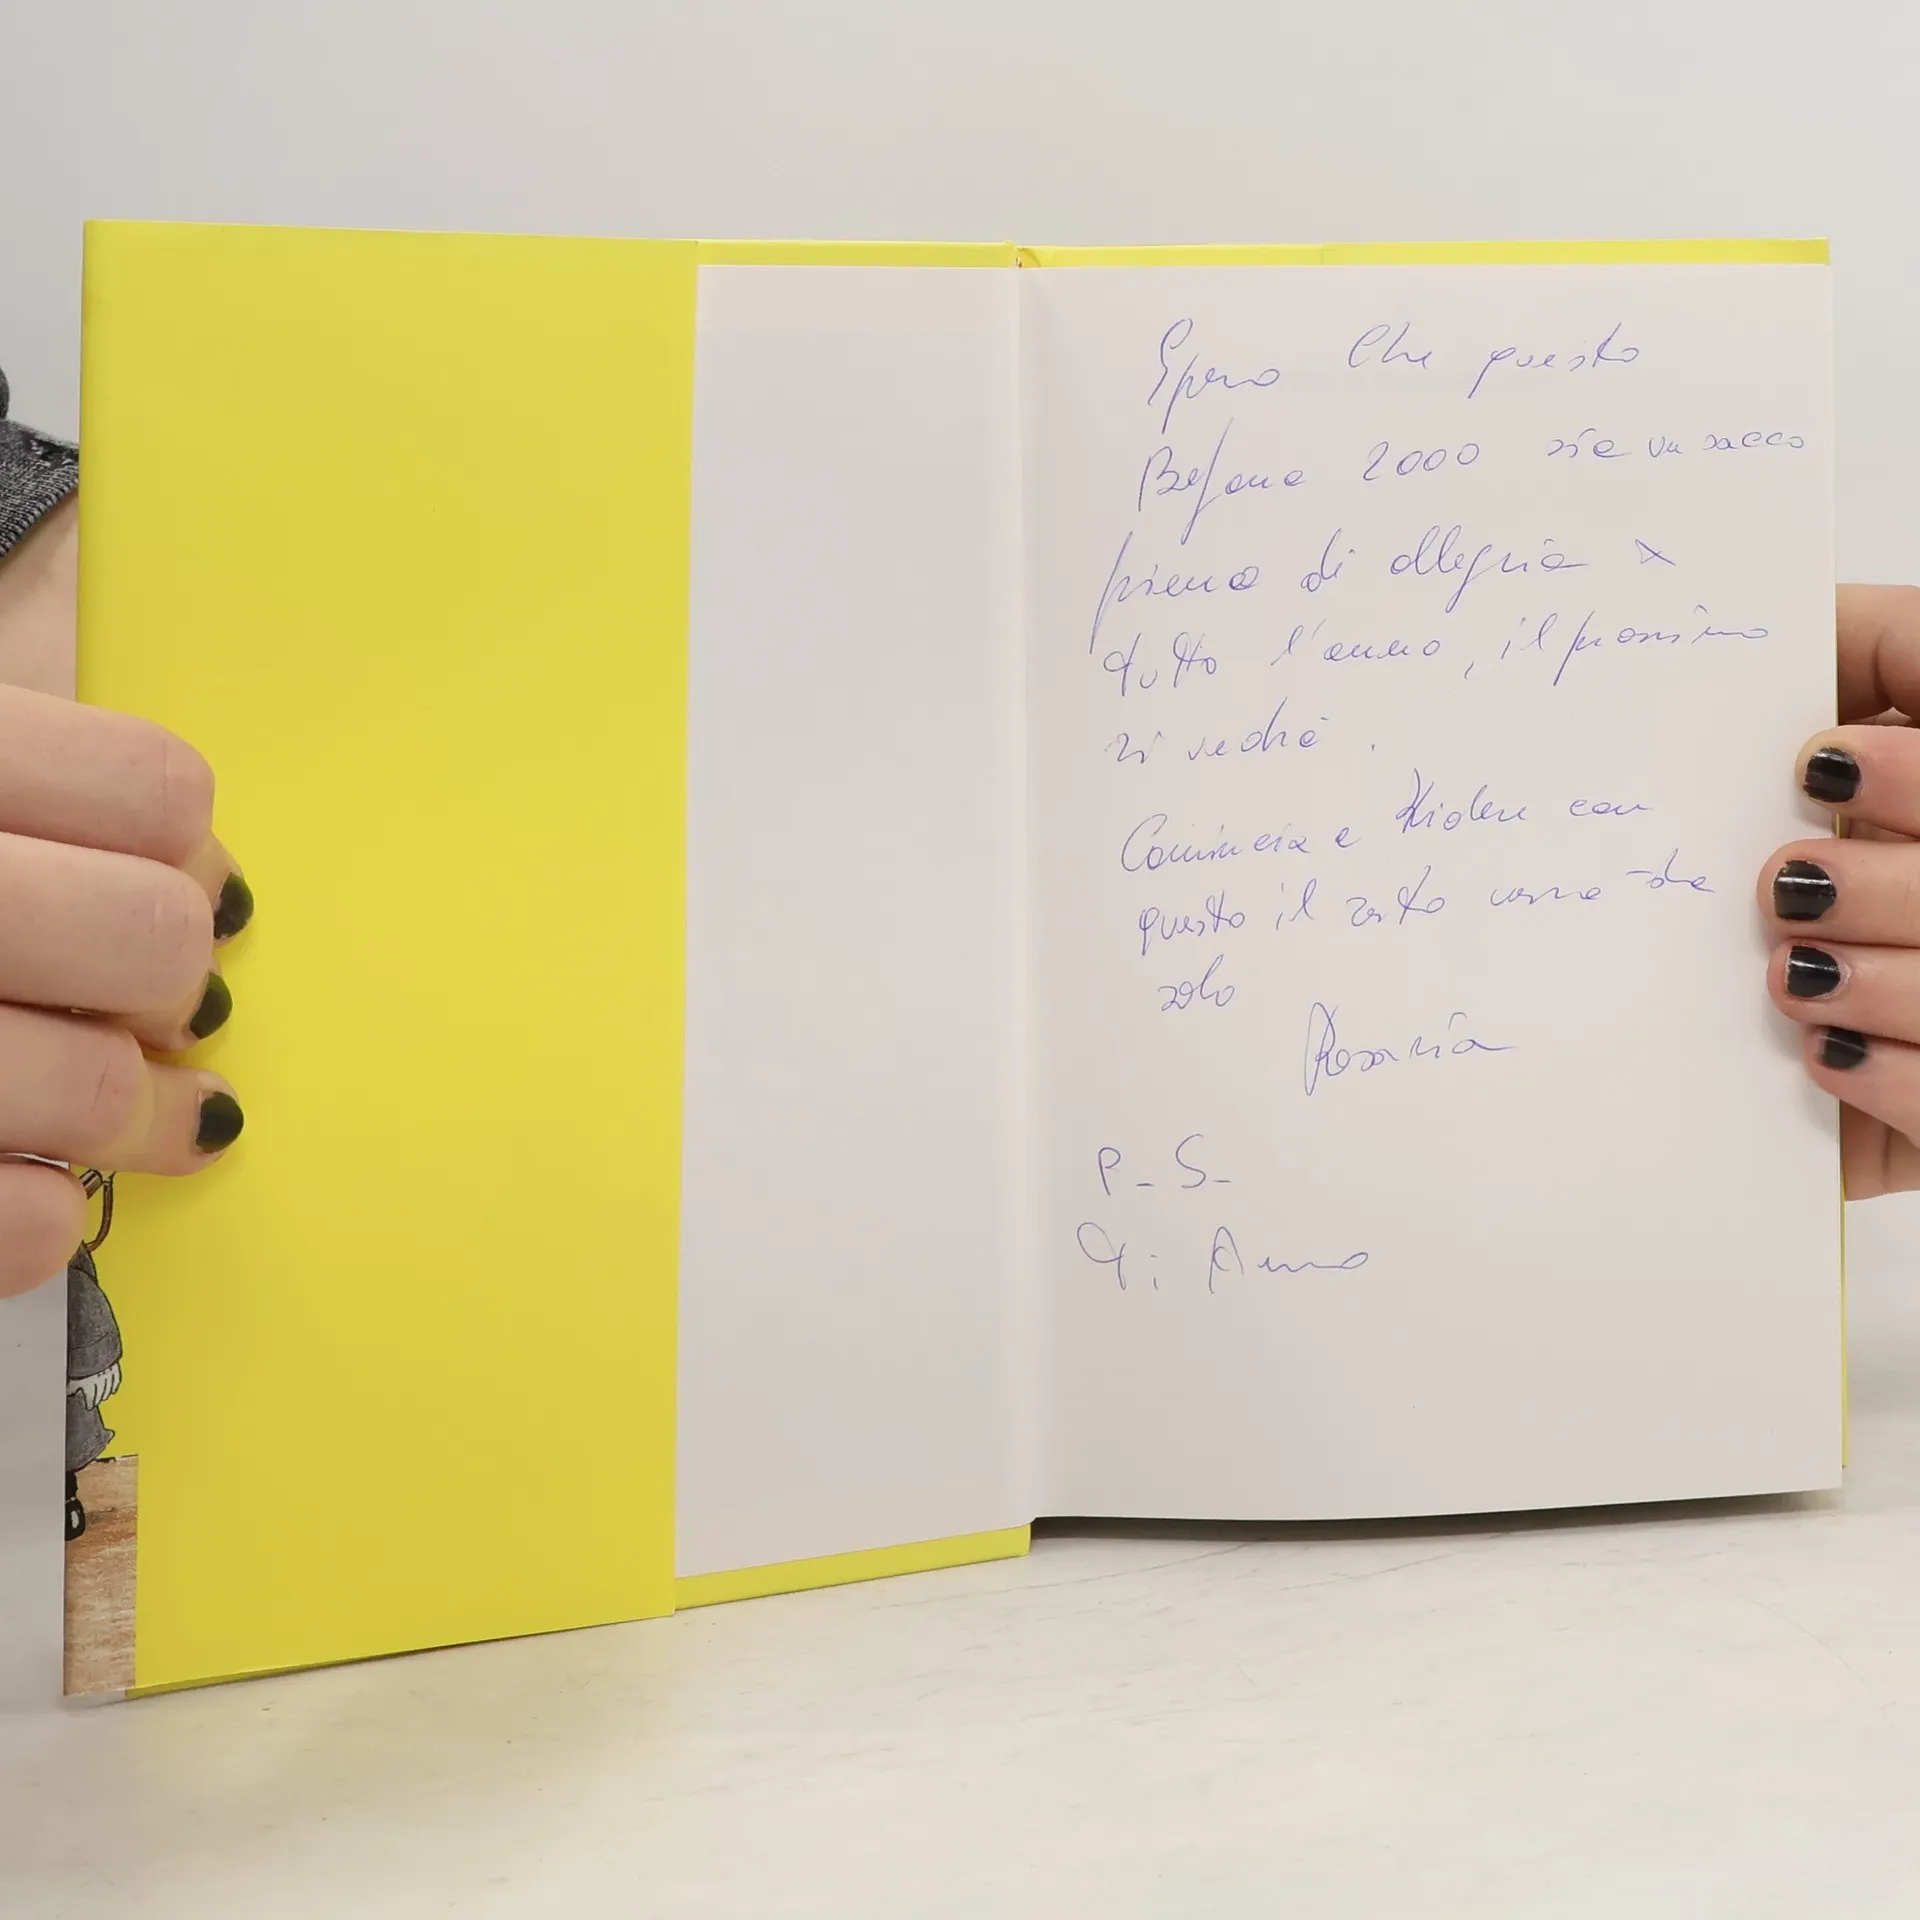 Spero che questo
Befana 2000 sia un sacco
piena di allegria x
tutto l'anno, il prossimo
si vedrà.
Comincia a ridere con
questo il resto verrà da
solo
Rosaria
P-S-
Ti Amo